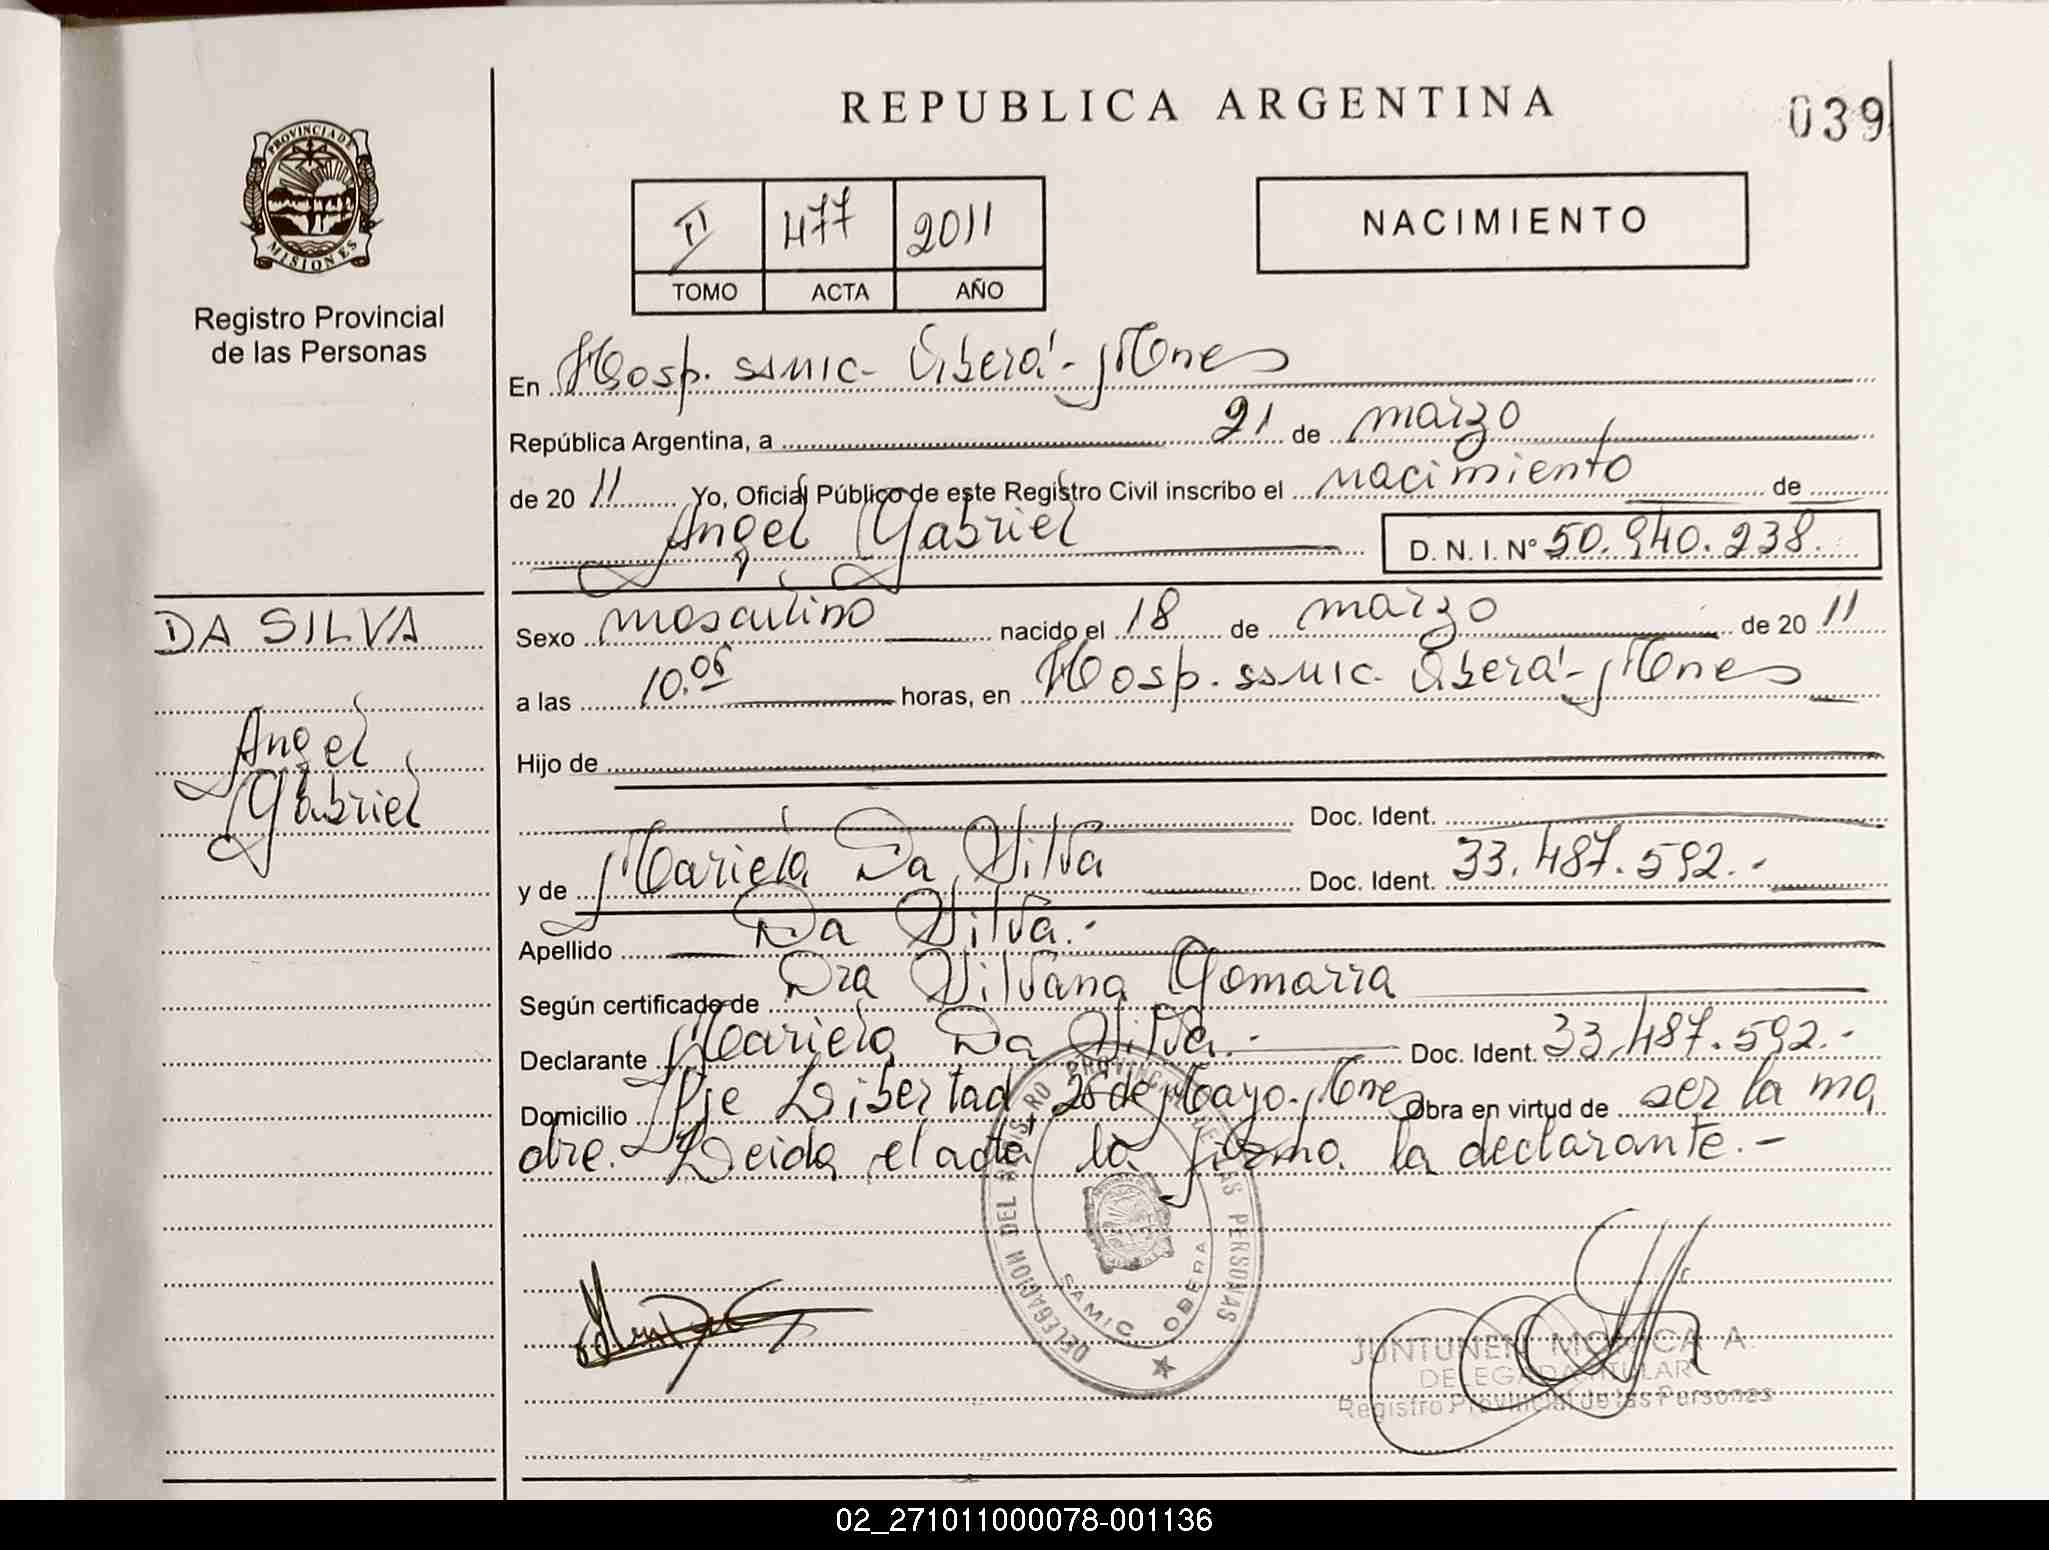 REPUBLICA ARGENTINA
039
PROVINCIA DE
MISIONES
Registro Provincial
de las Personas
II 477 2011
TOMO ACTA AÑO
NACIMIENTO
En Hosp. SAMIC - Oberá - Mnes
República Argentina, a 21 de marzo
de 20 11 Yo, Oficial Público de este Registro Civil inscribo el nacimiento de
Angel Gabriel D. N. I. Nº 50.940.238.
DA SILVA
Angel
Gabriel
Sexo masculino nacido el 18 de marzo de 20 11
a las 10.05 horas, en Hosp. SAMIC. Oberá - Mnes
Hijo de
Doc. Ident.
y de Mariela Da Silva Doc. Ident. 33.487.592.-
Apellido Da Silva.-
Según certificado de Dra Silvana Gomarra
Declarante Mariela Da Silva.- Doc. Ident. 33.487.592.-
Domicilio Pje Libertad 25 de Mayo - Mnes Obra en virtud de ser la ma
dre. Leida el acta la firma la declarante.-
DELEGACION DEL REGISTRO PROVINCIAL DE LAS PERSONAS
SAMIC OBERA
JUNTUNEN MONICA A.
DELEGADA TITULAR
Registro Provincial de las Personas
02_271011000078-001136